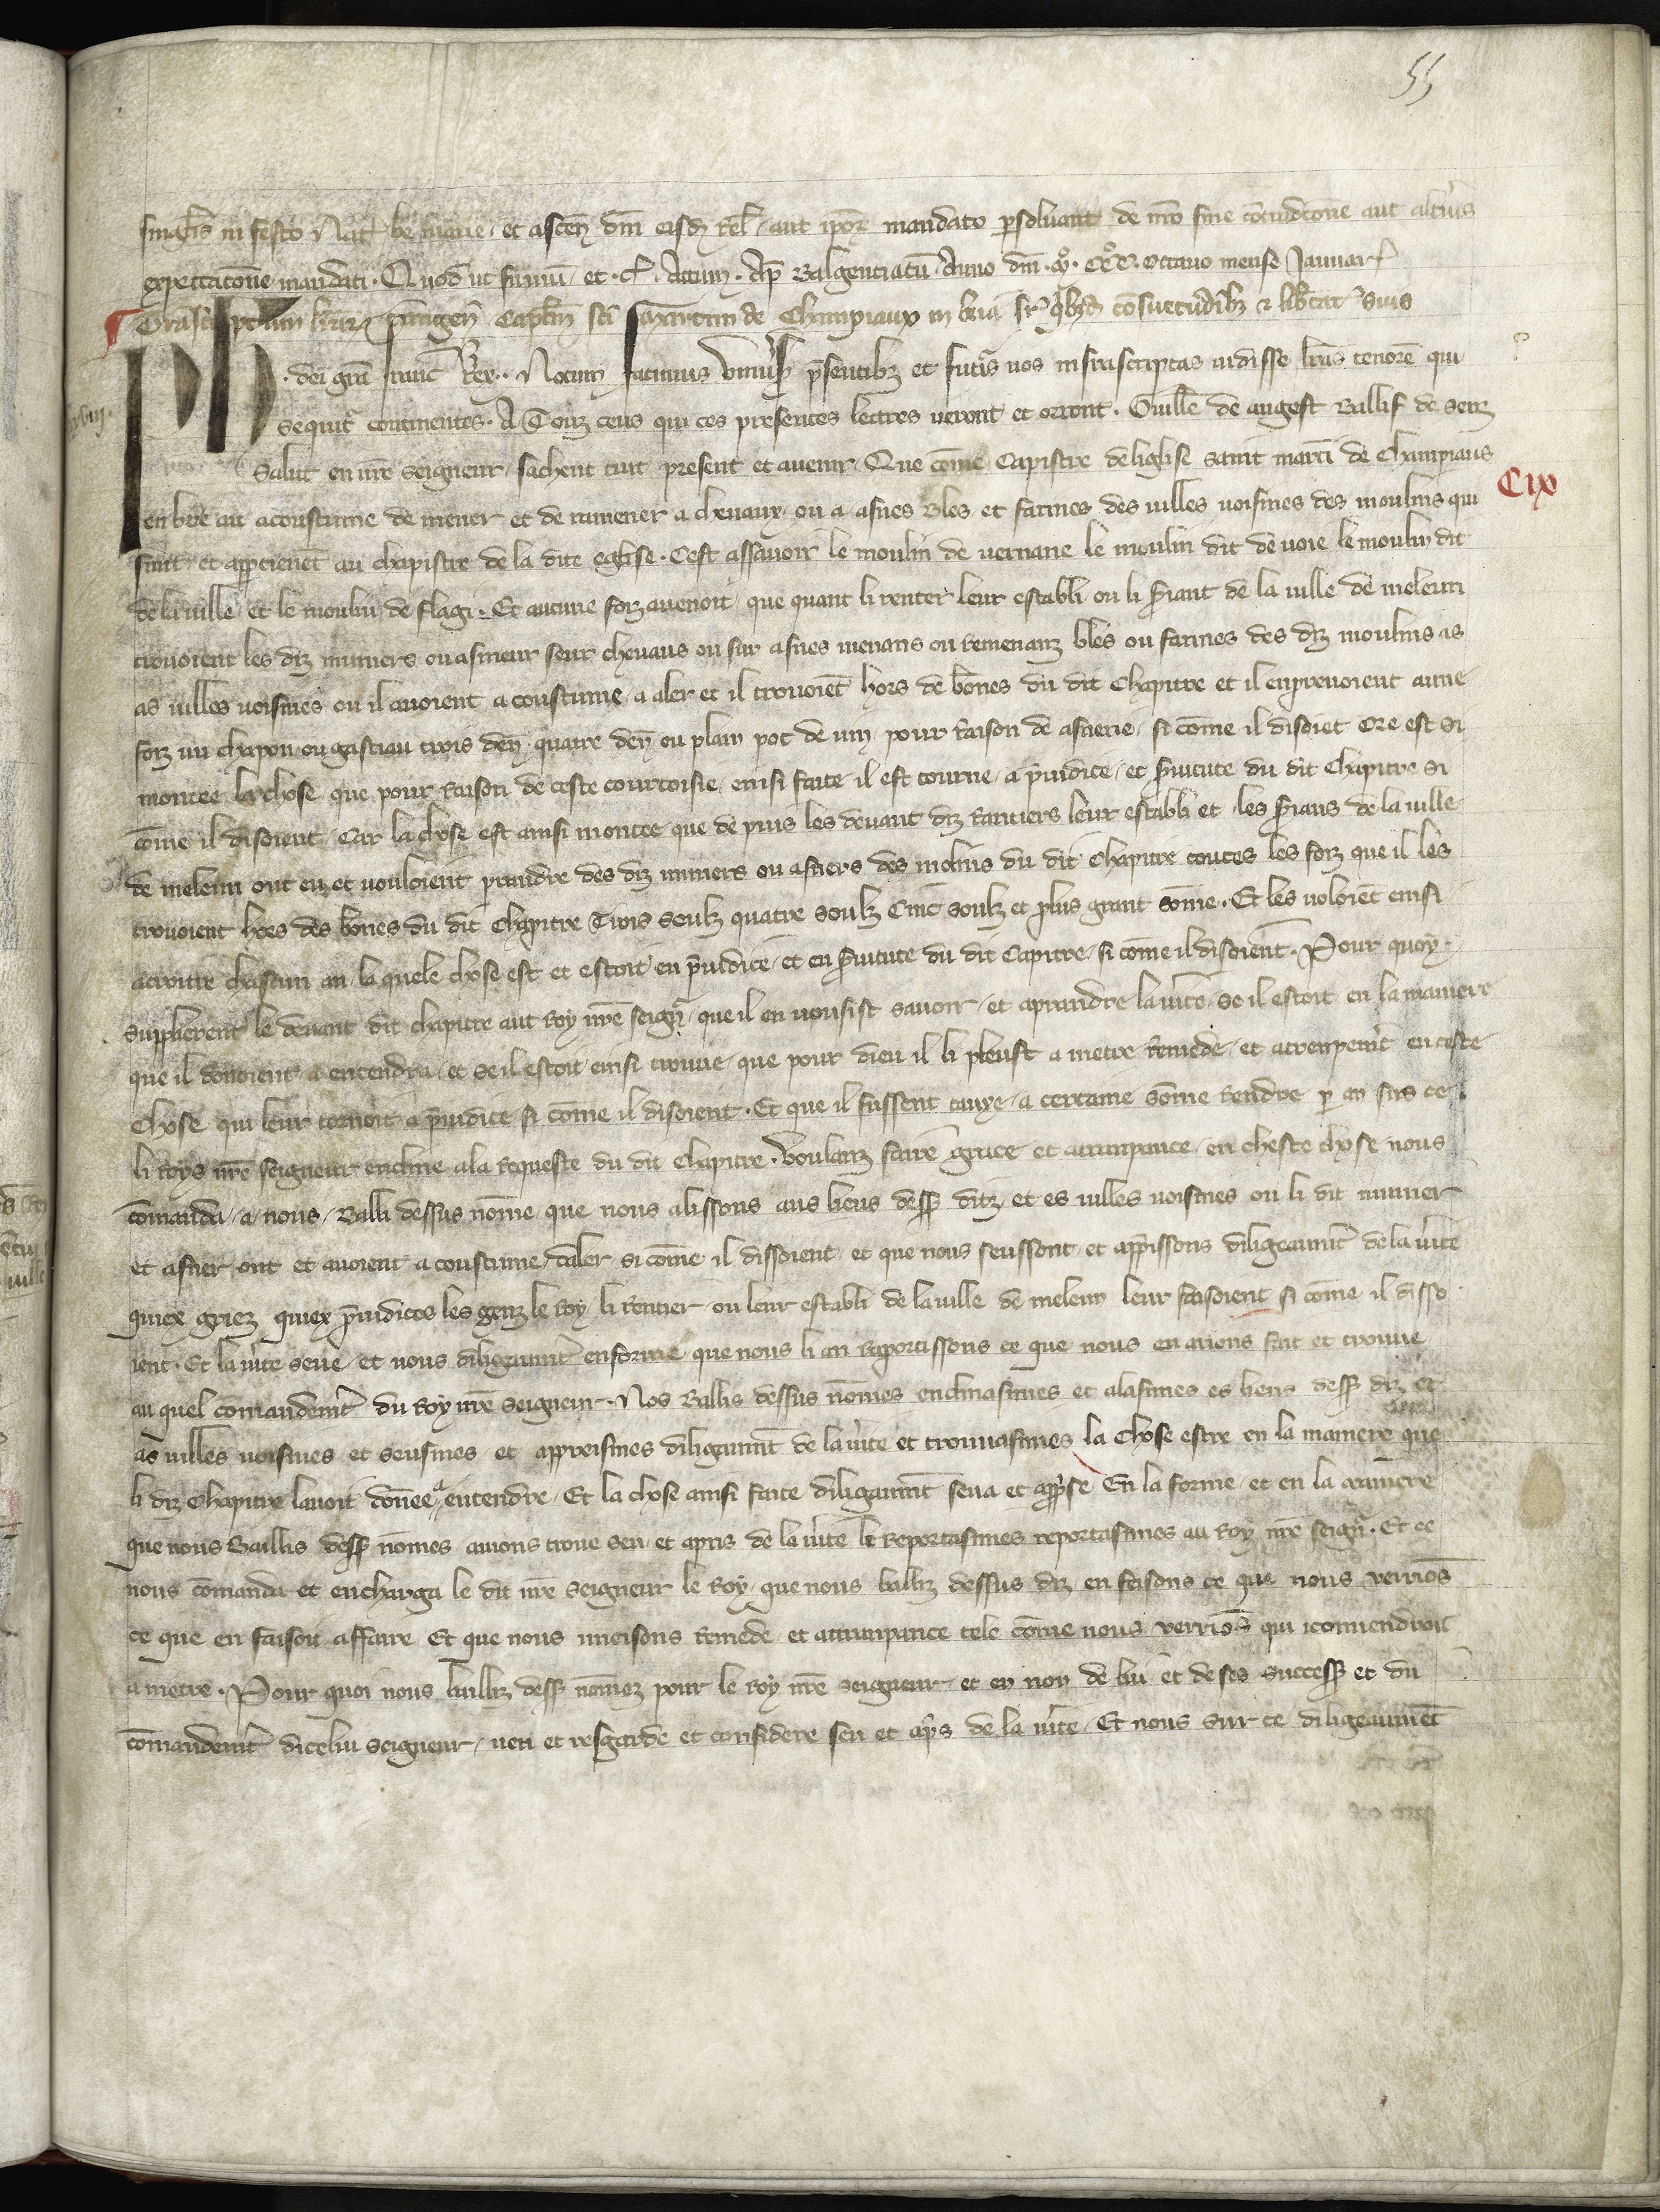 55
singulis in festo Nat. be. Marie. et ascen. dm̄ eisdē Rel. aut ipoꝝ mandato psoluant de nr̄o sine cōtradictōne aut alterius
expectacōne mandati. Quod ut firmū et. cꝭ. Actum. Ap̄ Balgentiacū. Anno dn̄i. mͦ. cccͦ. octauo mense Januarͥ
Trāscriptum lr̄aꝝ Capl̄m sc̄i martini de Champiaux in bria sꝑ qͥbꝫdā cōsuetudīibꝫ ⁊ lib̄tatꝭ suis
Ph. dei gr̄a franc̄ Rex. Notum facimus vniūsꝭ p̄sentibꝫ et futꝭis nos infrascriptas uidisse lr̄as tenorē qui
sequitꝭ continentes. A Touz ceus qui ces presentes lectres veront et orront. Guill̄e de angest Ballif de Senz
Salut en nr̄e seigneur, sachent tuit present et auenir. Que cōme Capistre deliglise saint martī de Champiaus
en brie ait acoustume de mener et de ramener a cheuaux ou a asnes bles et farines des uilles uoisines des moulins qui
sunt et apꝑtienēt au chapistre de la dite eglise. Cest assauoir le moulin de uernane le moulin dit de uoie le moulin dit
de la uille et le moulin de flagi. Et aucune foiz auenoit que quant li renter leur establi ou li ẜiant de la uille de meleun
trouoient les diz muniers ou asnieur seur cheuaus ou sur asnes menans ou remenanz bles ou farines des diz moulins as
as uilles uoisines ou il auoient acoustume a aler et il trouoiēt hors de bōnes du dit Chapitre et il enprenoient aune
foiz un chapon ou gastiau trois den̄. quatre den̄ ou plain pot de uin pour raison de asnerie, si cōme il disoiēt Ore est si
montee la chose que pour raison de ceste courtoisie einsi faite il est tourne a p̄iudice et ẜuitute du dit Chapitre si
cōme il disoient. Car la chose est ainsi montee que de puis les deuant diz Rantiers leur establi et les ẜians de la uille
de meleun ont euz et uouloient prandre des diz muniers ou asniers des molins du dit Chapitre toutes les foiz que il les
trouoient hors des bōnes du dit Chapitre Trois soulz quatre soulz Cinc soulz et plus grant sōme. Et les uoloiēt einsi
acroitre chascun an, la quele chose est et estoit en p̄iudice et en ẜuitute du dit Capitre, si cōme il disoient. Pour quoy
supplierent le deuant dit chapitre aut Roy nr̄e seignꝭ, que il en uousist sauoir et aprandre la ūite, se il estoit en la maniere
que il donoient a entendra, et se il estoit einsi trouue, que pour dieu il li pleust a metre remede et atrenpemt̄ en ceste
Chose qui leur tornoit a p̄iudice si cōme il disoient. Et que il fussent tauxe a certaine sōme rendre p an sus ce
li Roys nr̄e seigneur encline a la requeste du dit Chapitre. Voulanz faire grace et atrampance en cheste chose nous
cōmanda, a nous, Balli dessus nōme que nous alissons aus lieus dessꝭ ditz et es uilles uoisines ou li dit munier
et asnier ont et auoient acoustume daler si cōme il dissoient et que nous seussont et apꝑissons diligeaumt̄ de la ūite
quiex griez quiex p̄iudices les genz le Roy, li Rentier ou leur establi de la uille de meleun leur faisoient si cōme il disso
ient. Et la ūite seue et nous diligaumt̄ enforme que nous li an reportissons ce que nous en aurions fait et trouue
au quel cōmandemt̄ du Roy nr̄e seigneur. Nos Ballis dessus nōmes enclinasimes et alasimes es lieus dessꝭ diz et
as uilles uoisines et seusimes et appreismes diligaumt̄ de la ūite et trouuasimes la Chose estre en la maniere que
li diz Chapitre lauoit donee a entendre. Et la chose ainsi faite diligaumt̄ seua et apꝑse En la forme et en la maniere
que nous Baillis dessꝭ nōmes auions troue seu et apris de la ūite le reportasimes reportasimes au Roy nr̄e seignꝭ. Et ce
nous cōmanda et encharga le dit nr̄e seigneur le Roy, que nous balliz dessus diz en feisons ce que nous verriōs
ce que en faisoit affaire Et que nous imeisons remede et attranpance tele cōme nous verriōs qui iconuendroit
a metre. Pour quoi nous bailliz dessꝭ nōmez pour le Roy nr̄e seigneur et en non de lui et de ses successꝭ et du
cōmandemt̄ diceliu seigneur, ueu et resgarde et considere seu et apꝑs de la ūite. Et nous sur ce diligeaumēt
Cix